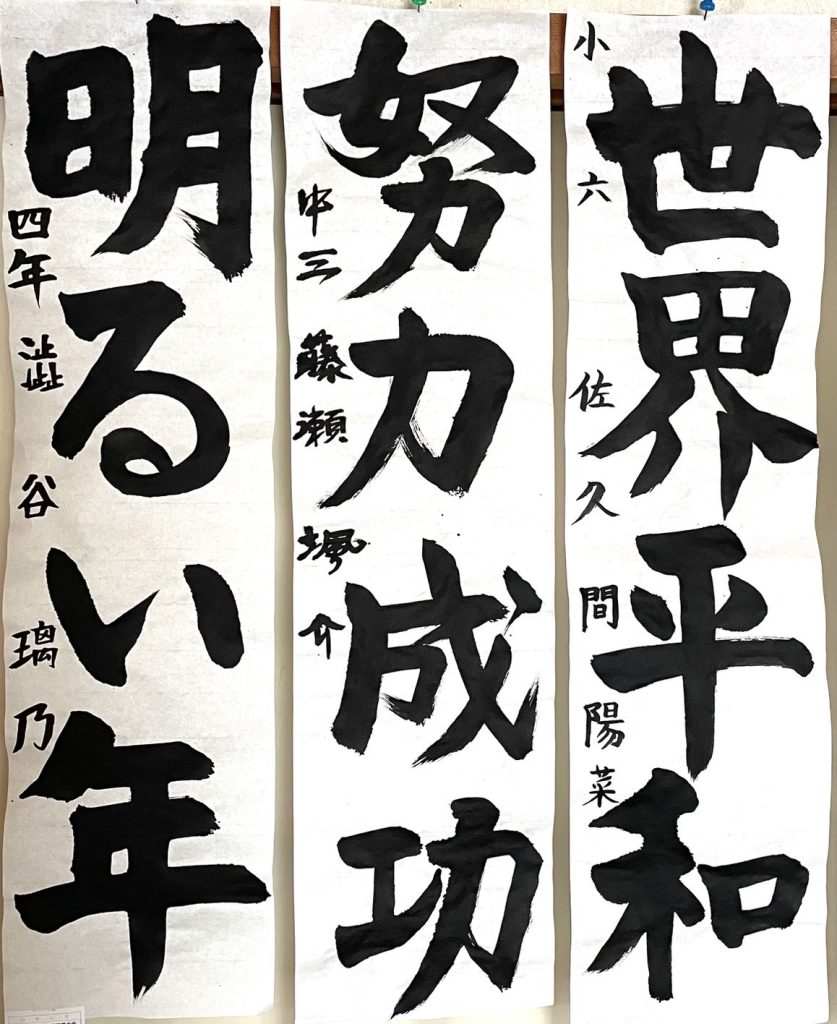 世界平和
小六 佐久間陽菜
努力成功
中三 藤瀬颯介
明るい年
四年 澁谷璃乃